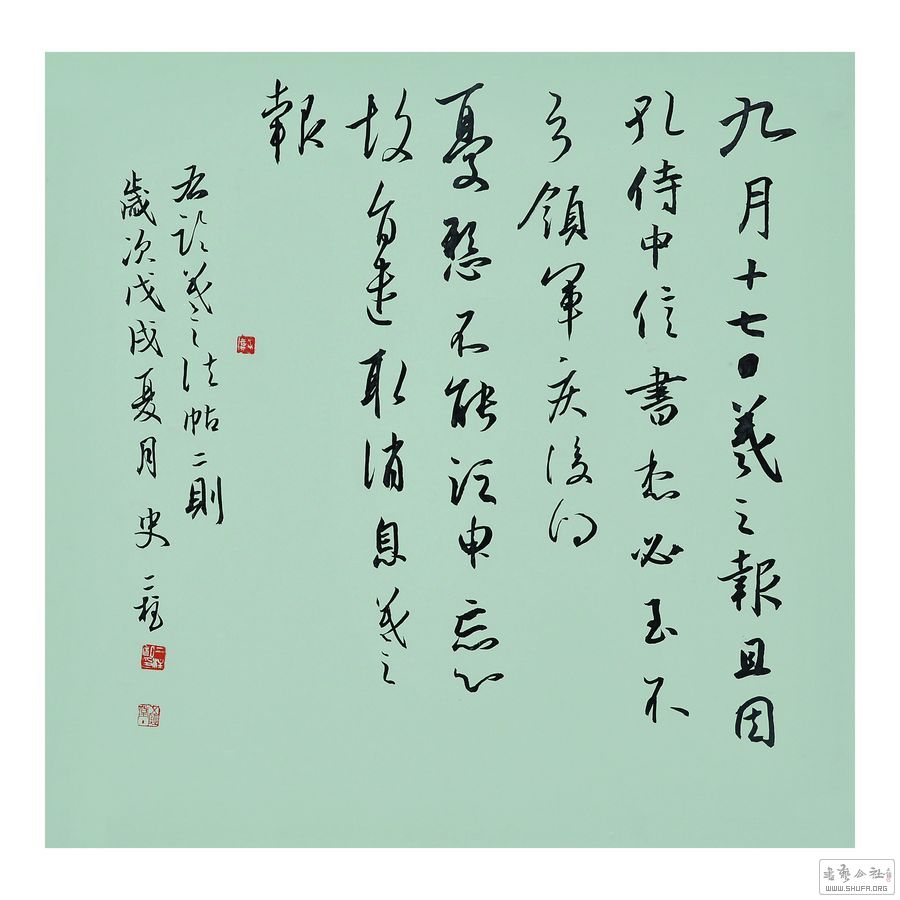 九月十七日羲之報且因
孔侍中信書想必至不
知領軍疾後問
憂懸不能須申忘心
故旨遣取消息羲之
報
右臨羲之法帖二則
歲次戊戌夏月 史二柱
WWW.SHUFA.ORG